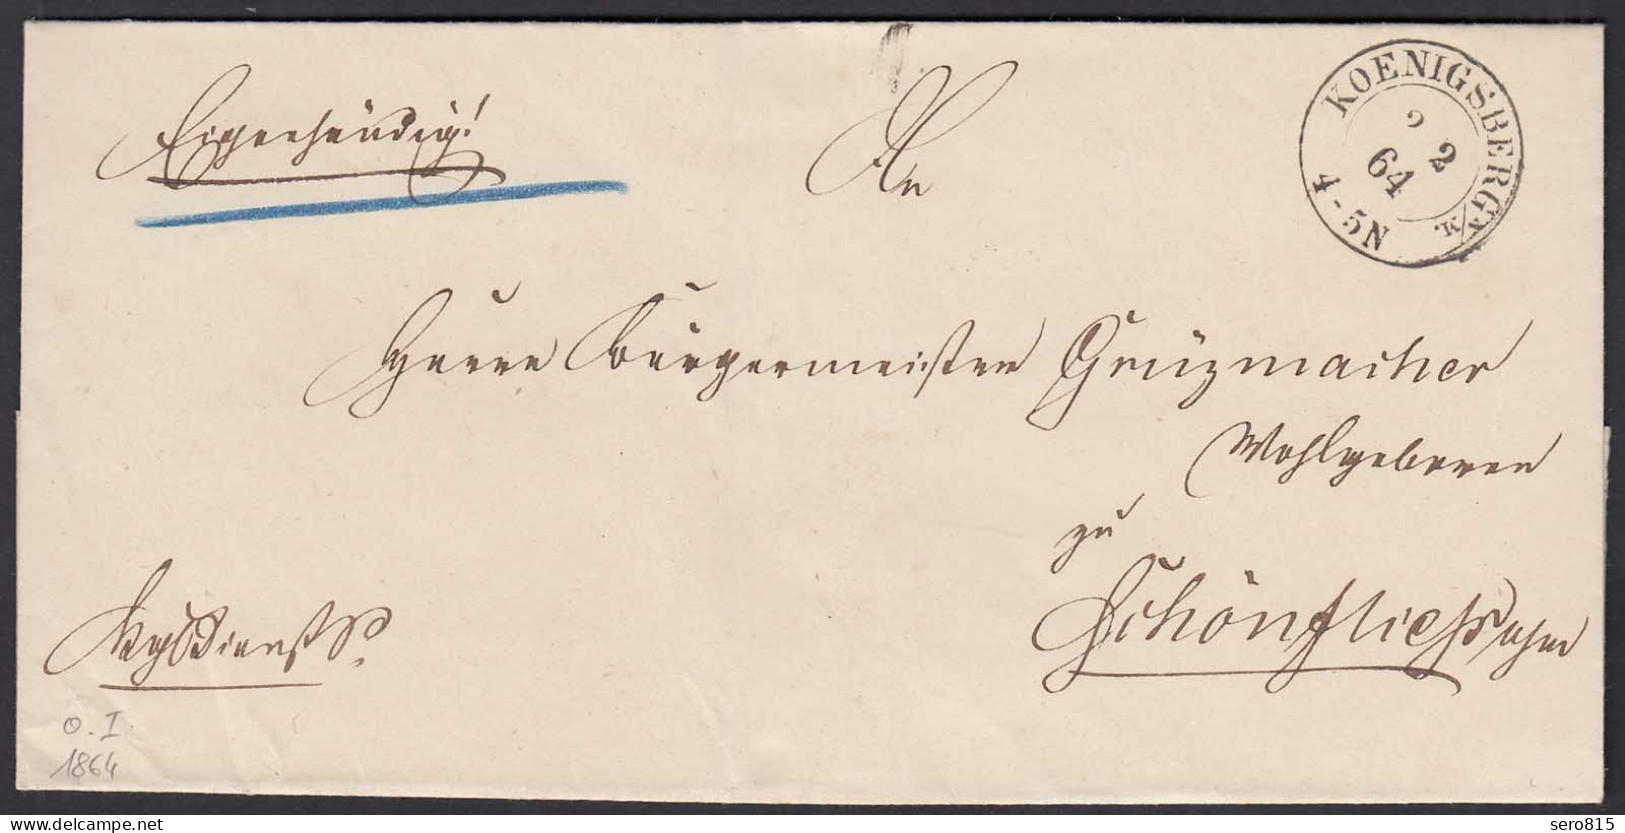 Eigenhändig!
An
KOENIGSBERG N/M.
2 2
64
4-5N
Herrn Bürgermeister Grüzmacher
Wohlgeboren
zu
Schönfliess
o. I.
1864
www.delcampe.net
sero815